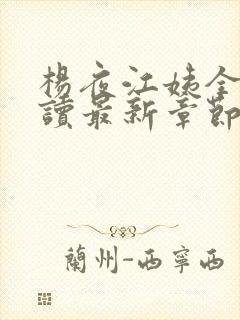 楊夜江姨全
讀最新章節
蘭州-西寧西